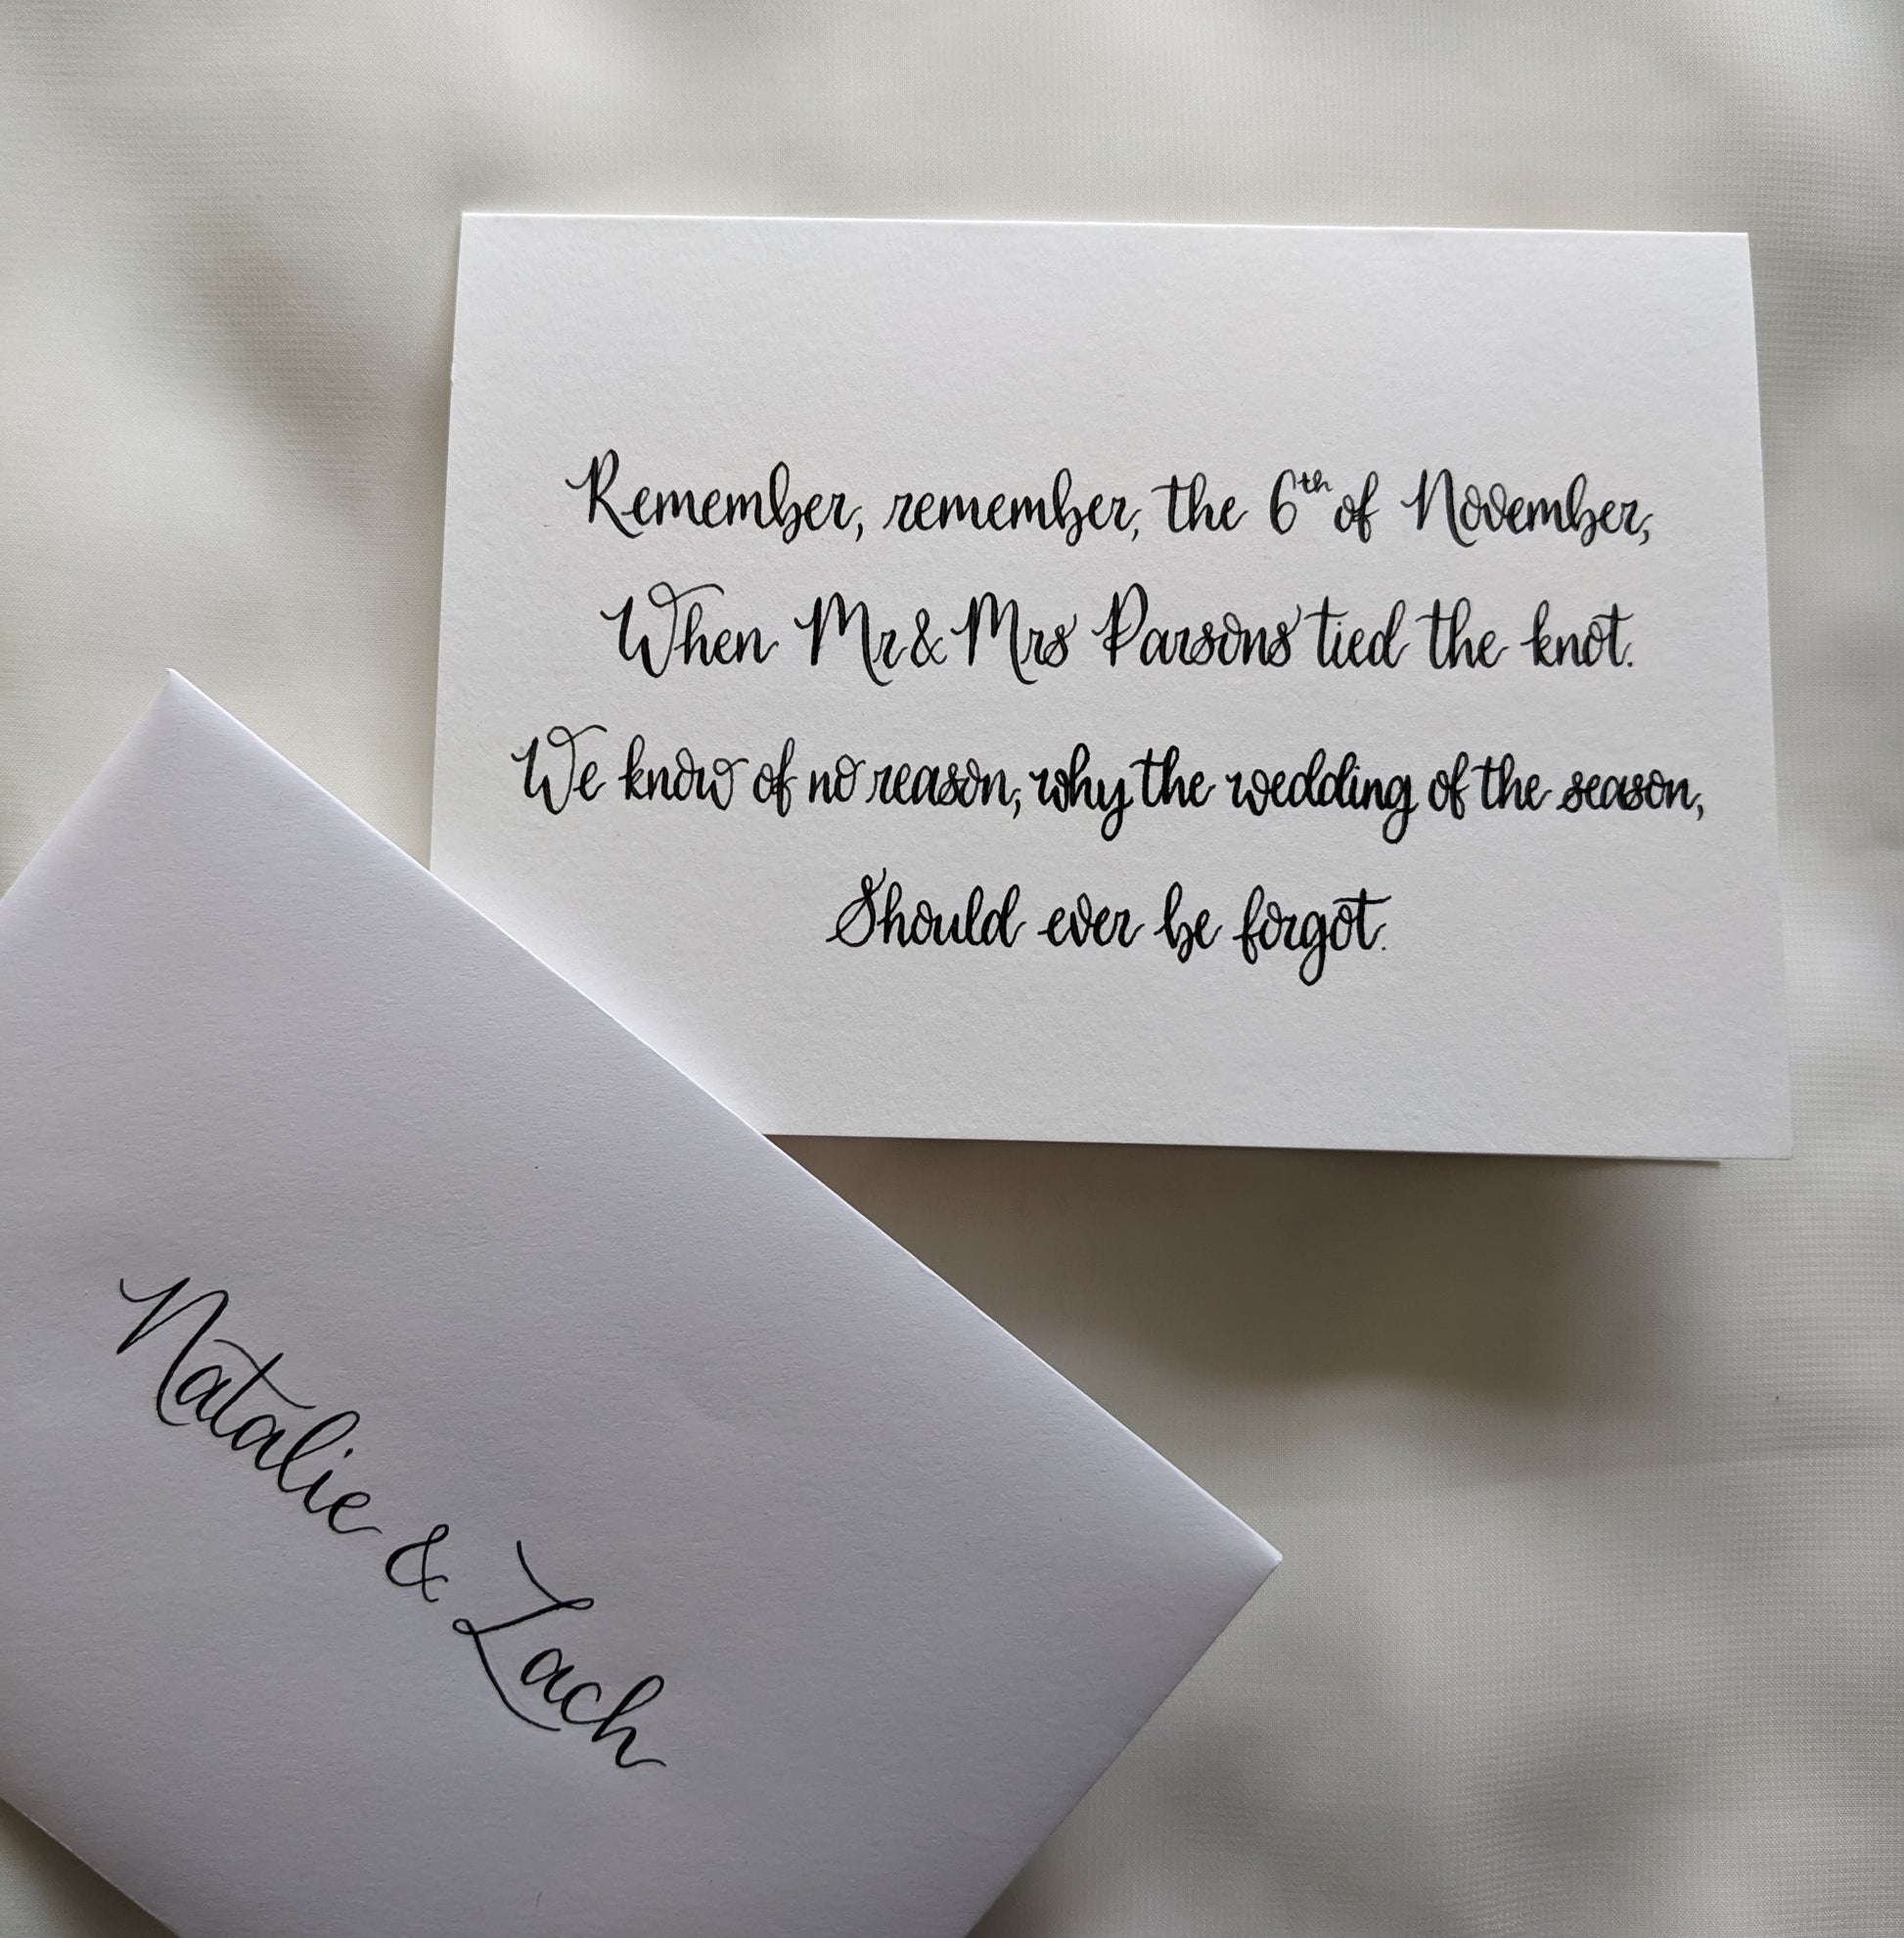 Remember, remember, the 6th of November,
When Mr & Mrs Parsons tied the knot.
We know of no reason, why the wedding of the season,
Should ever be forgot.
Natalie & Zach